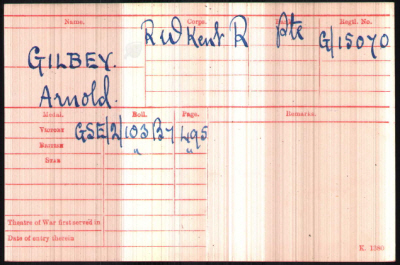 Name. Corps. Rank. Regtl. No.
GILBEY. R W Kent R Pte G/15070
Arnold.
Medal. Roll. Page. Remarks.
VICTORY GSE/2/103B7 495
BRITISH " "
STAR
Theatre of War first served in
Date of entry therein
K. 1380